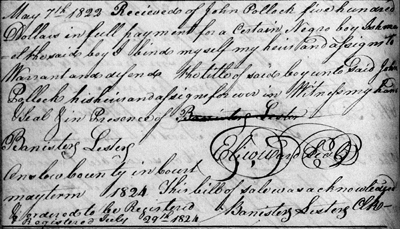 May 7th 1822 Recieved of John Pollock five hundred
Dollars in full payment for a Certain Negro boy
the said boy I bind myself my heirs and assigns to
Warrant and defend the title of said boy unto said John
Pollock his heirs and assigns forever in Witness my hand
& Seal in Presence of Banister Lester
Banister Lester
Onslow County in Court
may term 1824 This bill of sale was acknowledged
& ordered to be Registered Banister Lester Clk
Registered July 29th 1824